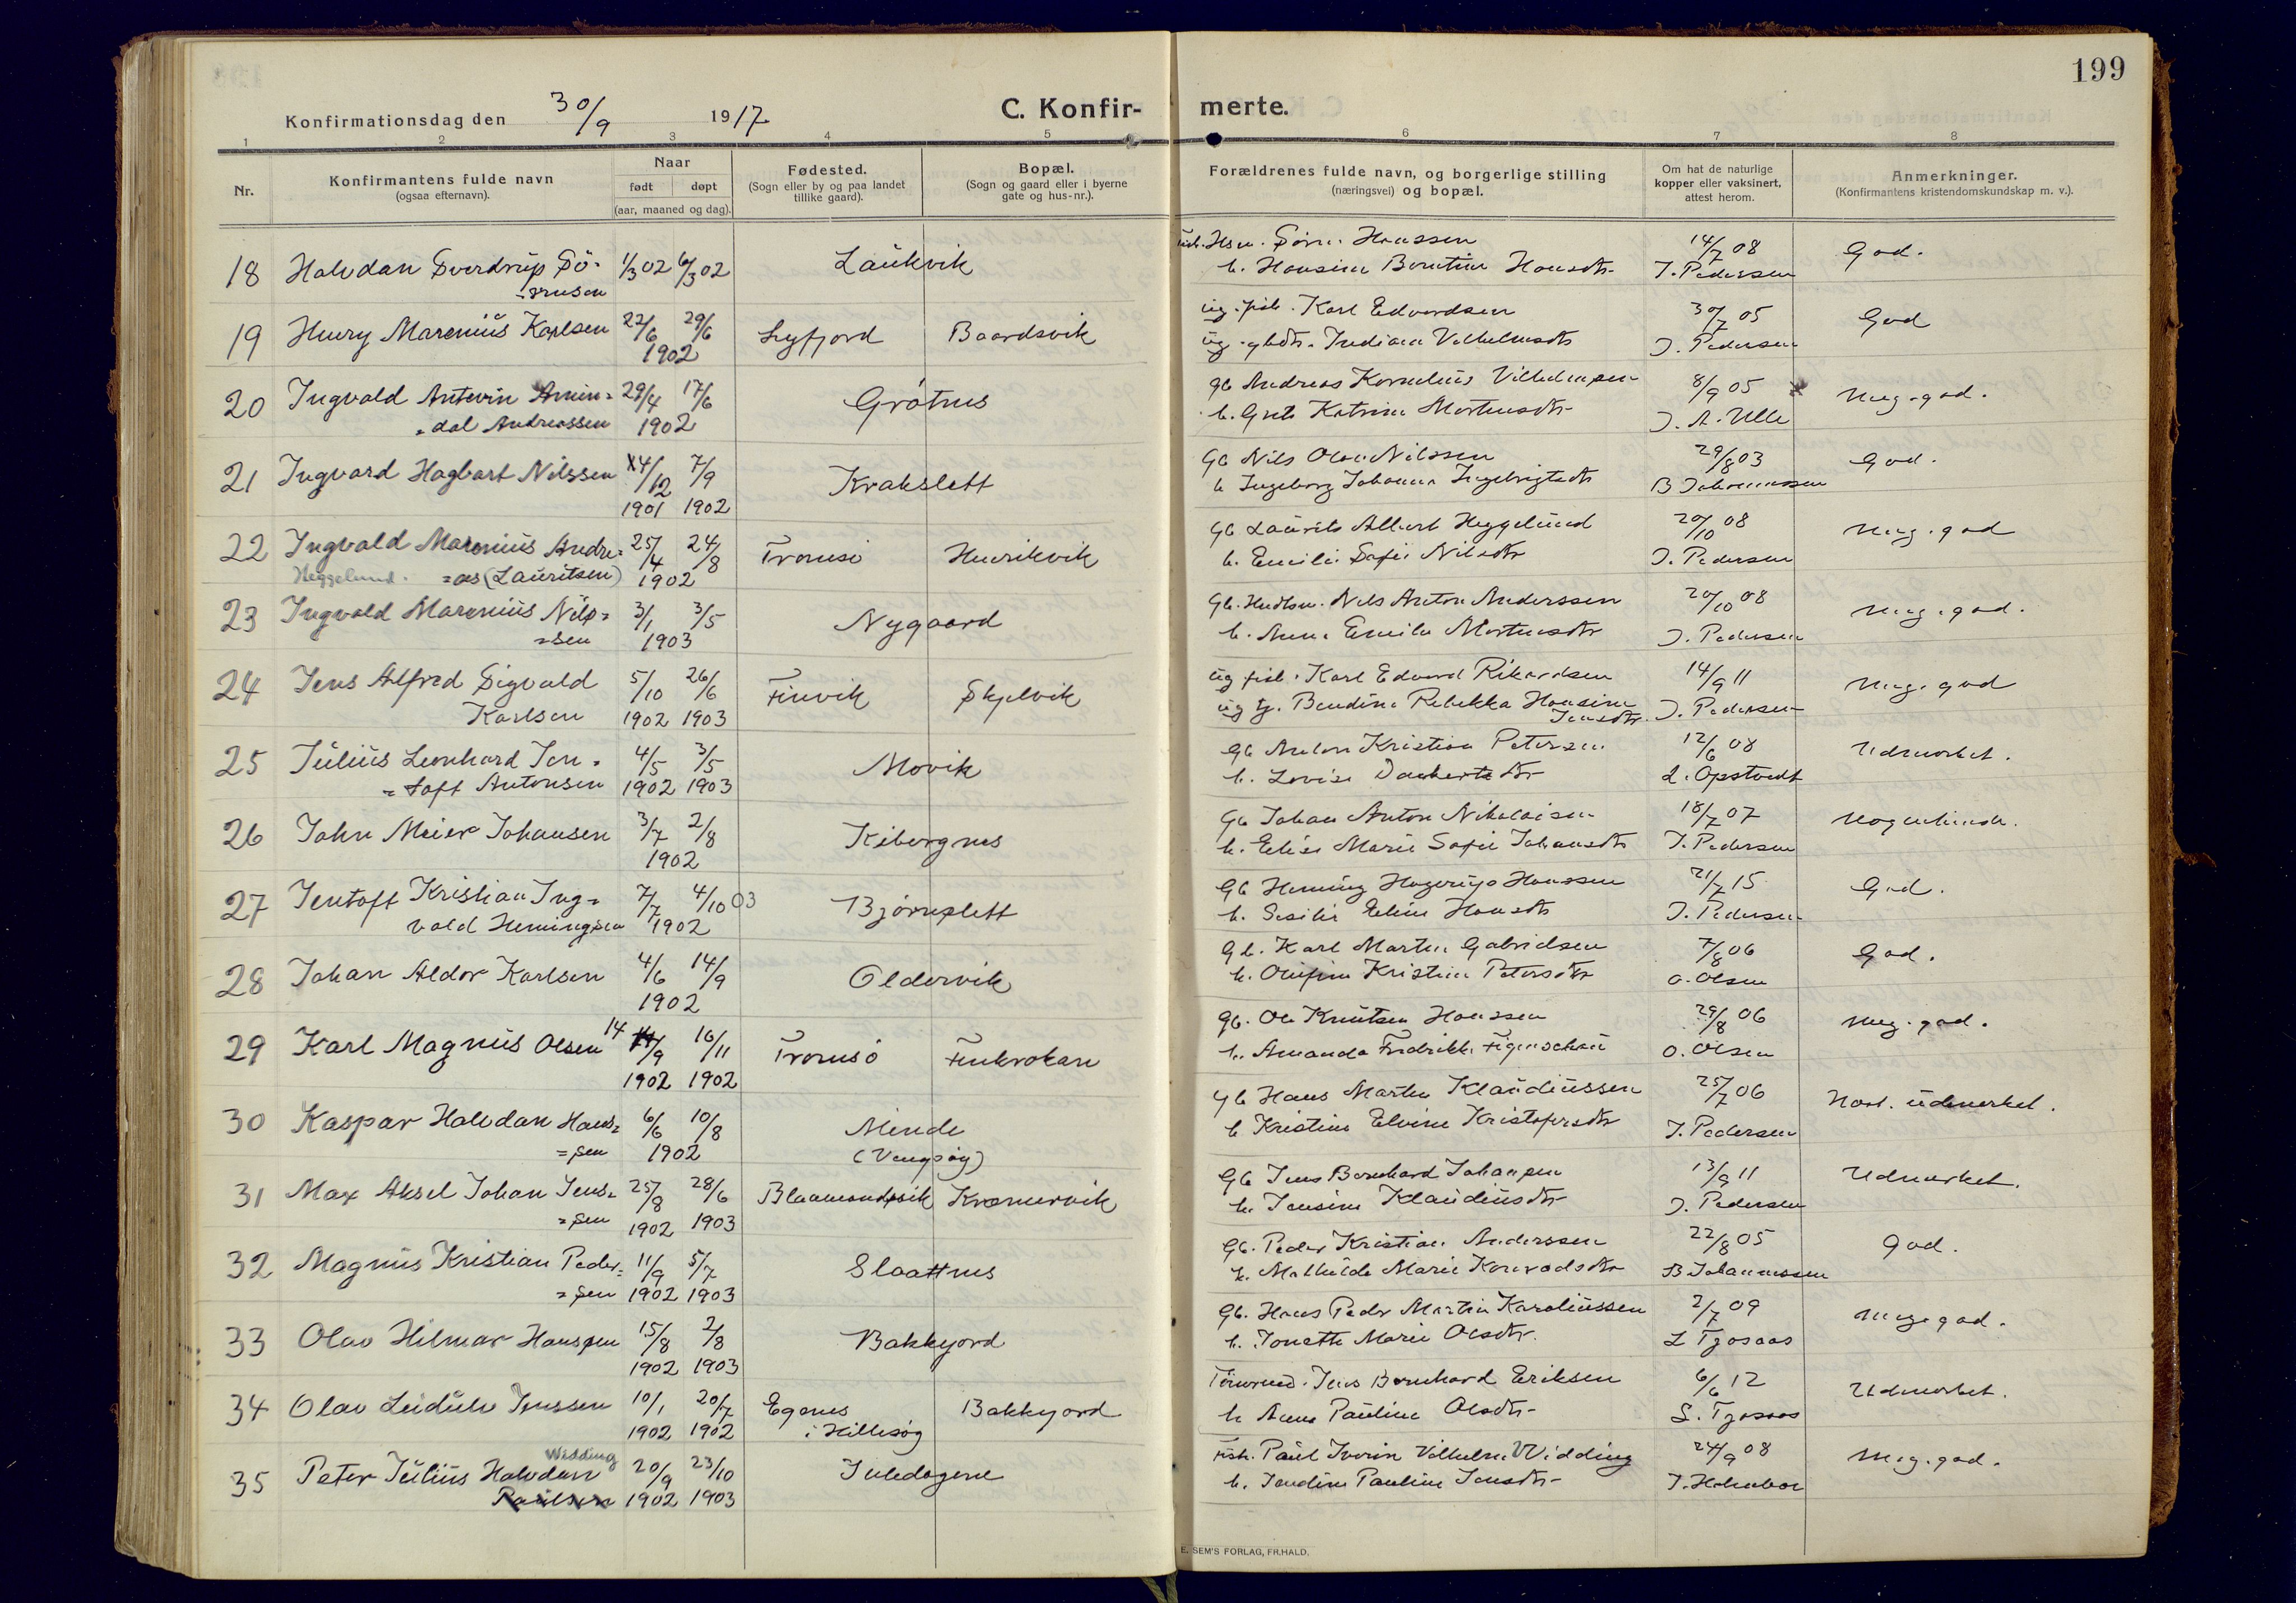 199
Konfirmationsdag den 30/9 1917
C. Konfir- merte.
1 2 3 4 5 6 7 8
Nr.
Konfirmantens fulde navn
(ogsaa efternavn).
Naar
født døpt
(aar, maaned og dag).
Fødested.
(Sogn eller by og paa landet
tillike gaard).
Bopæl.
(Sogn og gaard eller i byerne
gate og hus-nr.).
Forældrenes fulde navn, og borgerlige stilling
(næringsvei) og bopæl.
Om hat de naturlige
kopper eller vaksinert,
attest herom.
Anmerkninger.
(Konfirmantens kristendomskundskap m. v.).
18 Halvdan Sverdrup Sö- 1/3 02 6/3 02 Laukvik Hsm. Sörn. Hanssen 14/7 08 God.
=rnsen h. Hansine Berntine Hansdtr J. Pedersen
19 Henry Marenius Karlsen 22/6 29/6 Lyfjord Baardsvik ug. fisk. Karl Edvardsen 30/7 05 God
1902 ug. gbdtr. Indiana Vilhelmsdtr J. Pedersen
20 Ingvald Antevin Amun= 29/4 17/6 Grötnes gb Andreas Kornelius Vilhelmsen 8/9 05 Meg. god.
=dal Andreassen 1902 h. Grete Katrine Mortensdtr J. A. Ulle
21 Ingvard Hagbart Nilssen 14/12 7/9 Krakslett Gb Nils Olai Nilssen 29/8 03 God.
1901 1902 h Ingeborg Johanna Ingebrigtsdtr B Johannessen
22 Ingvald Marenius Andre= 25/4 24/8 Tromsö Henrikvik Gb Laurits Albert Heggelund 20/10 08 Meg. god
Heggelund. =as (Lauritsen) 1902 h. Emilie Sofie Nilsdtr J. Pedersen
23 Ingvald Marenius Nils= 3/1 3/5 Nygaard Gb. Hndlsm. Nils Anton Anderssen 20/10 08 Meg. god.
=sen 1903 h. Anna Emilie Mortensdtr J. Pedersen
24 Jens Alfred Sigvald 5/10 26/6 Finvik Skjelvik ug fisk. Karl Edvard Rikardsen 14/9 11 Meg. god
Karlsen 1902 1903 ug tj. Bendine Rebekka Hansine Jensdtr. J. Pedersen
25 Julius Leonhard Jen= 4/5 3/5 Movik Gb Anton Kristian Petersen 12/6 08 Udmerket.
=toft Antonsen 1902 1903 h. Lovise Daubertsdtr L. Opstvedt
26 John Meier Johansen 3/7 2/8 Kibergnes Gb Johan Anton Nikolaisen 18/7 07 Nogenlunde.
1902 h. Elise Marie Sofie Johansdtr J. Pedersen
27 Jentoft Kristian Ing= 7/7 4/10 03 Bjørnslett Gb Heming Hagerup Hanssen 21/7 15 God.
vald Hemingsen 1902 h. Sesilie Eline Hansdtr J. Pedersen
28 Johan Aldor Karlsen 4/6 14/9 Oldervik Gb. Karl Martin Gabrielsen 7/8 06 God.
1902 h. Olufine Kristine Petersdtr O. Olsen
29 Karl Magnus Olsen 14/9 16/11 Tromsö Finkroken Gb. Ole Knutsen Hanssen 29/8 06 Meg. god.
1902 1902 h. Amanda Fredrikke Figenschau O. Olsen
30 Kaspar Halvdan Hans= 6/6 10/8 Minde Gb Hans Martin Klaudiussen 25/7 06 Næst. udmerket.
=sen 1902 (Vengsöy) h Kristine Elvine Kristofersdtr J. Pedersen
31 Max Aksel Johan Jens= 25/8 28/6 Blaamandsvik Kræmervik Gb Jens Bernhard Johansen 13/9 11 Udmerket.
=sen 1902 1903 h. Jensine Klaudiusdtr J. Pedersen
32 Magnus Kristian Peder= 11/9 5/7 Slaattnes Gb. Peder Kristian Anderssen 22/8 05 God.
=sen 1902 1903 h. Mathilde Marie Konradsdtr B Johannessen
33 Olav Hilmar Hanssen 15/8 2/8 Bakkejord Gb. Hans Peder Martin Karoliussen 2/7 09 Meg. god.
1902 1903 h. Jonette Marie Olsdtr. L Tjosaas
34 Olav Leidulv Jenssen 10/1 20/7 Egenes Bakkejord Tömmermd. Jens Bernhard Eriksen 6/6 12 Udmerket.
1902 1902 i Hillesøy h Anna Pauline Olsdtr S. Tjosaas
35 Peter Julius Halvdan Widding 20/9 23/10 Juledagene Fisk. Paul Iverin Vilhelm Widding 24/9 08 Meg. god.
Paulsen 1902 1903 h. Jendine Pauline Jensdtr J. Holmboe
E. SEM'S FORLAG, FR.HALD.